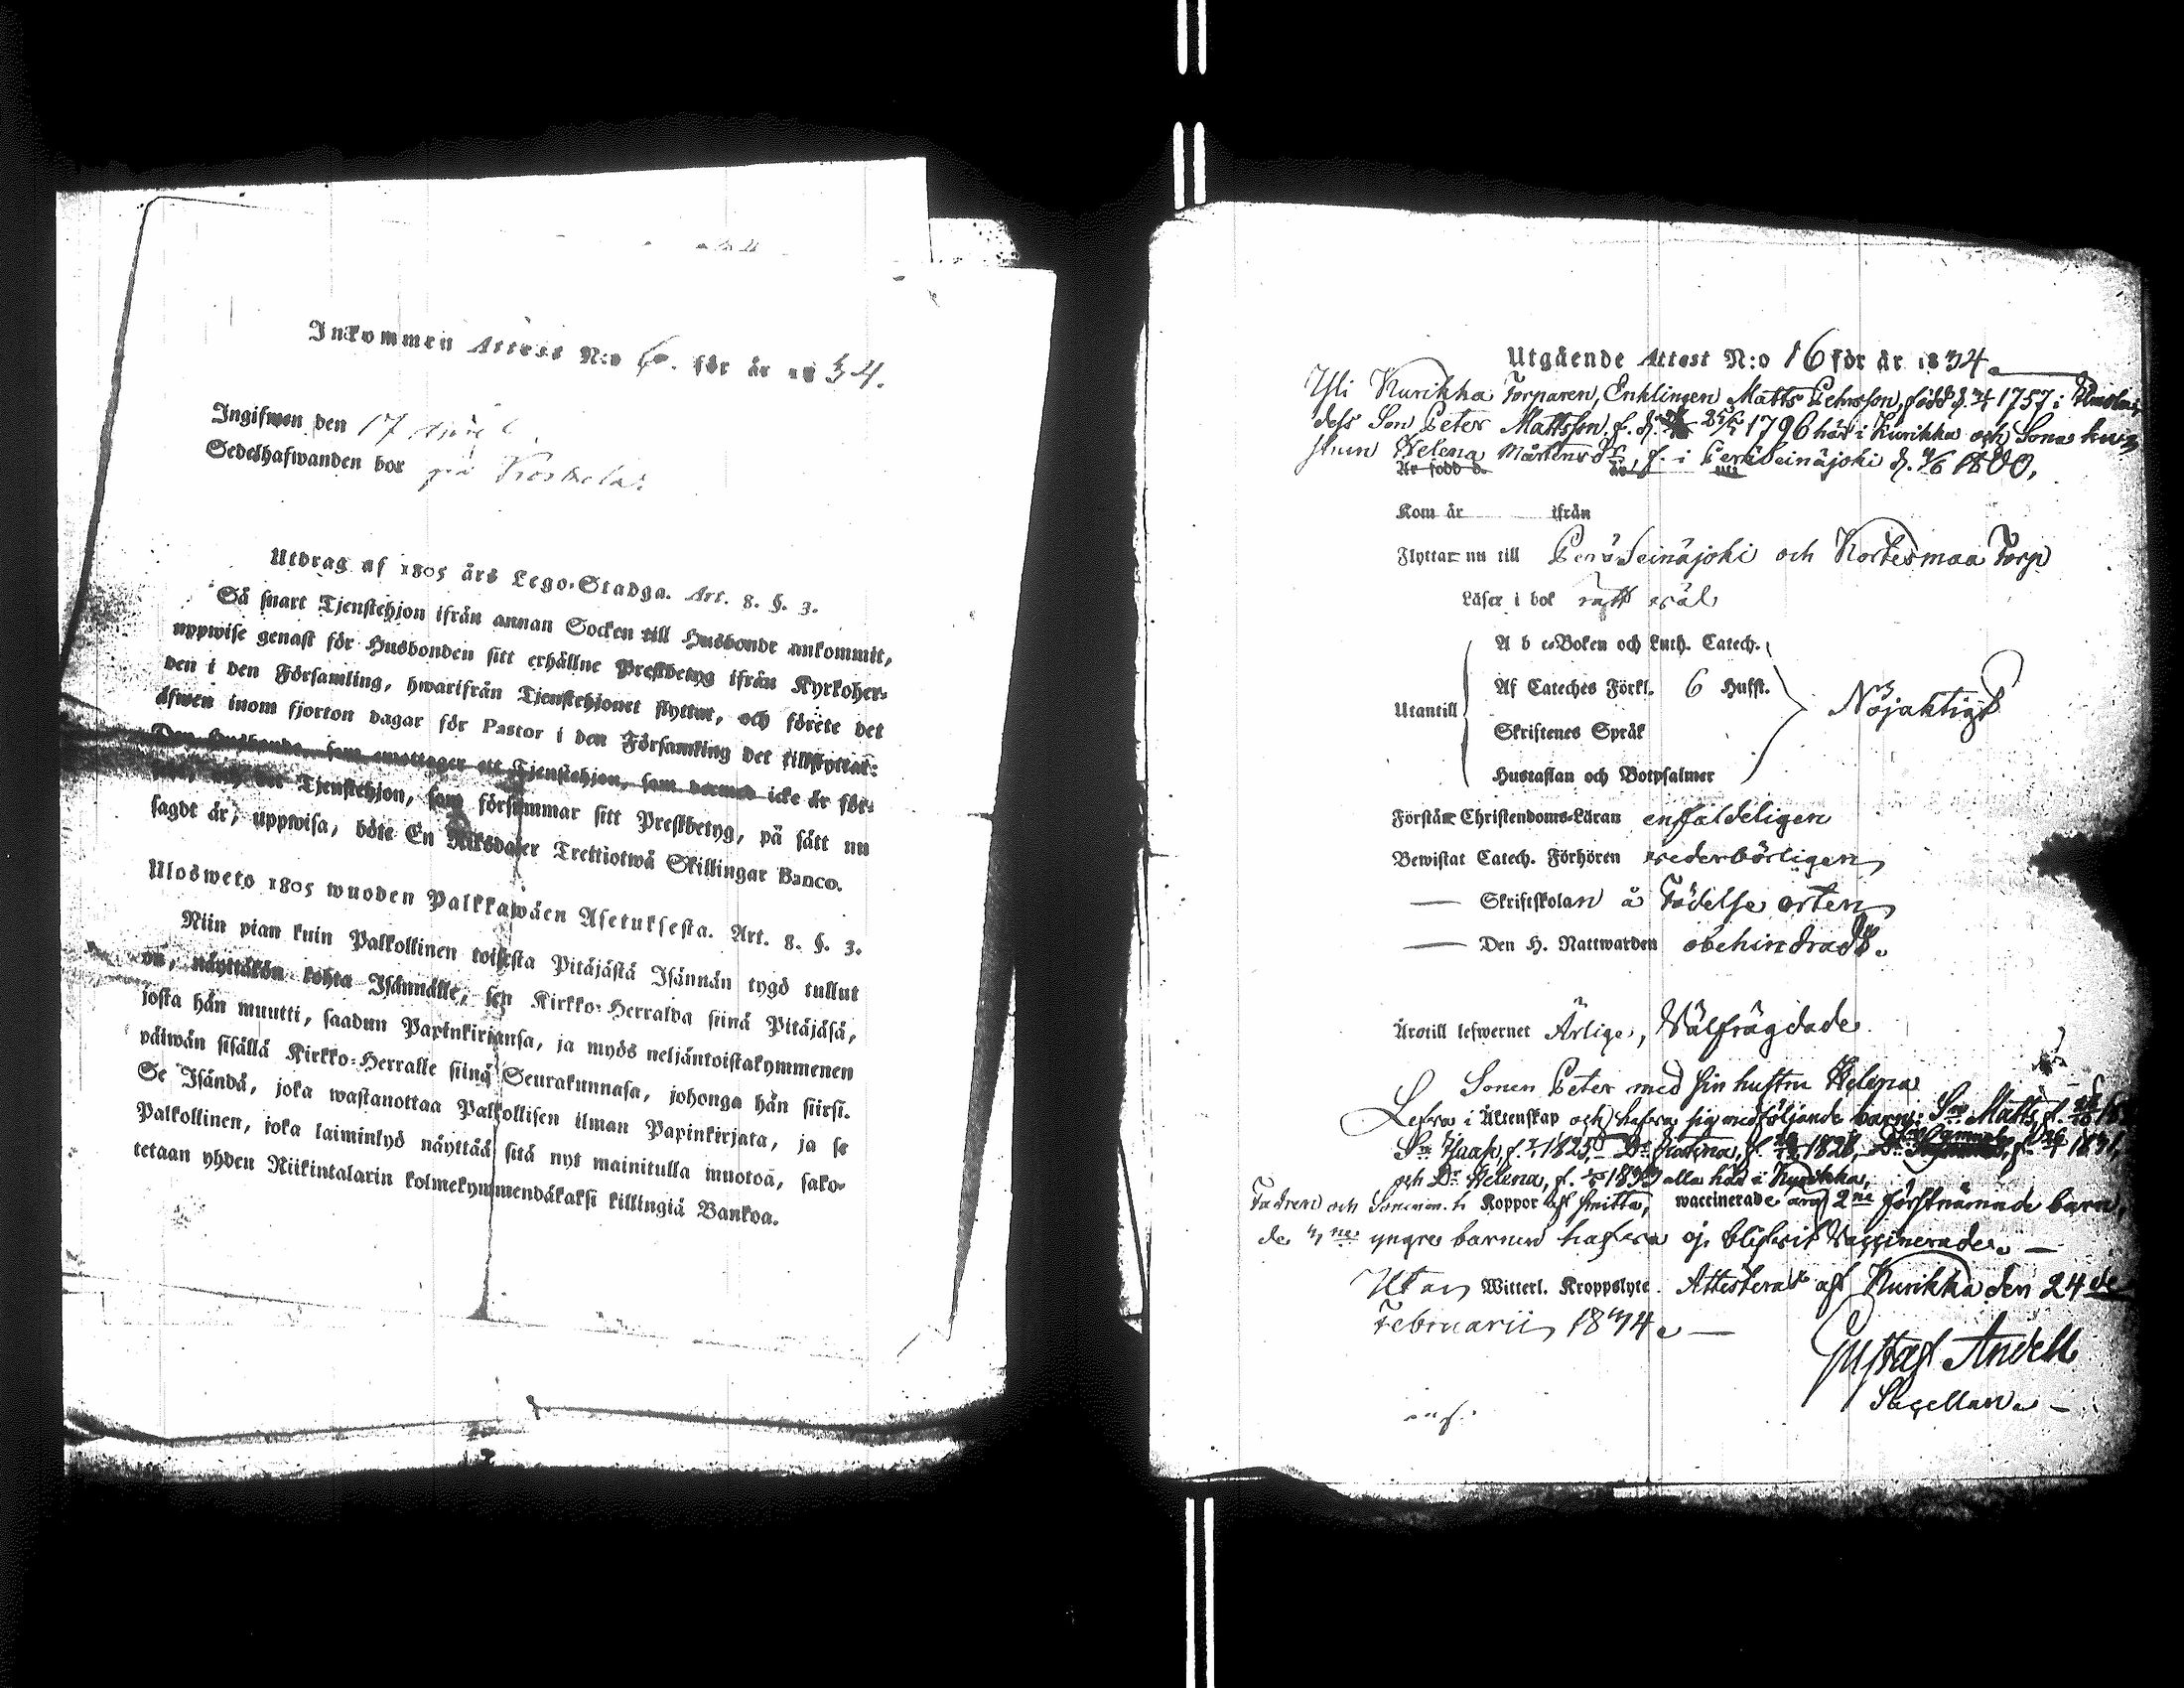 Inkommen Attest N:o 6. för år 1834.
Ingifwen den 17 April
Sedelhafwanden bor på Koskela
Utdrag af 1805 års Lego-Stadga. Art. 8. §. 3.
Så snart Tjenstehjon ifrån annan Socken till Husbonde ankommit,
uppwise genast för Husbonden sitt erhållne Prestbetyg ifrån Kyrkoher-
den i den Församling, hwarifrån Tjenstehjonet flyttat, och förete det
äfwen inom fjorton dagar för Pastor i den Församling det tillflyttat:
Den Husbonde, som emottager ett Tjenstehjon, som dermed icke är för-
Tjenstehjon, som försummar sitt Prestbetyg, på sätt nu
sagdt är, uppwisa, böte En Riksdaler Trettiotwå Skillingar Banco.
Ulosweto 1805 wuoden Palkkawäen Asetuksesta. Art. 8. §. 3.
Niin pian kuin Palkollinen toisesta Pitäjästä Isännän tygö tullut
on, näyttäkön kohta Isännälle, sen Kirkko-Herralda siinä Pitäjäsä,
josta hän muutti, saadun Papinkirjansa, ja myös neljäntoistakymmenen
päiwän sisällä Kirkko-Herralle siinä Seurakunnasa, johonga hän siirsi.
Se Isändä, joka wastanottaa Palkollisen ilman Papinkirjata, ja se
Palkollinen, joka laiminlyö näyttää sitä nyt mainitulla muotoa, sako-
tetaan yhden Riikintalarin kolmekymmendäkaksi killingiä Bankoa.
Utgående Attest N:o 16 för år 1834.
Yli Kurikka Torparen, Enklingen Matts Pehrsson, född d. 1757 i Ilmola,
dess Son Peter Mattsson, f. d. 1796 här i Kurikka och Sonens hu-
strun Helena Mårtensdr, f. i Peräseinäjoki d. 1800,
Är född d.
Kom år ifrån
Flyttar nu till Peräseinäjoki och Kortesmaa Torp
Läser i bok rätt wäl
Utantill
A b c-Boken och Luth. Catech.
Af Cateches Förkl. 6 Hufst.
Skriftenes Språk
Hustaflan och Botpsalmer
Nöjaktigt
Förstår Christendoms-Läran enfaldeligen
Bewistat Catech. Förhören wederbörligen
— Skriftskolan å Födelse orten
— Den H. Nattwarden obehindradt.
Ärotill lefwernet Ärlige, Wälfrägdade.
Sonen Peter med sin hustru Helena
Lefwa i Äktenskap och hafwa sig medföljande barn: Sn Matts, f.
Sn Isaak, f. 1825, Dr Katrina, f. 1828, f. 1831,
och Dr Helena, f. 1833 alla här i Kurikka,
Fadren och Sonen Koppor af smitta, waccinerade äro 2ne förstnämnde barn,
de 3ne yngre barnen hafwa ej blifwit Vaccinerade. —
Utan Witterl. Kroppslyte. Attesteras af Kurikka den 24de
Februarii 1834. —
Gustaf Andell
Sacellan. —